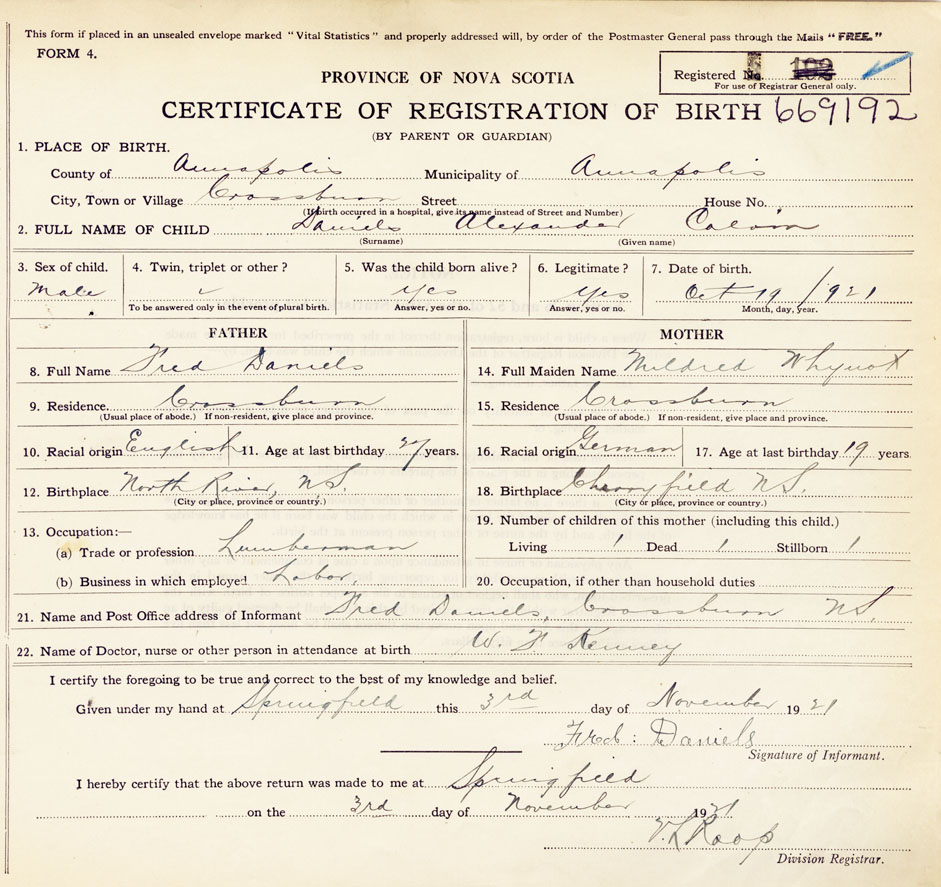 This form if placed in an unsealed envelope marked "Vital Statistics" and properly addressed will, by order of the Postmaster General pass through the Mails "FREE."
FORM 4.
PROVINCE OF NOVA SCOTIA
Registered No. 192
For use of Registrar General only.
CERTIFICATE OF REGISTRATION OF BIRTH 669192
(BY PARENT OR GUARDIAN)
1. PLACE OF BIRTH.
County of Annapolis Municipality of Annapolis
City, Town or Village Crossburn Street House No.
(If birth occurred in a hospital, give its name instead of Street and Number)
2. FULL NAME OF CHILD Daniels Alexander Calvin
(Surname) (Given name)
3. Sex of child. 4. Twin, triplet or other? 5. Was the child born alive? 6. Legitimate? 7. Date of birth.
Male yes yes Oct 19 / 921
To be answered only in the event of plural birth. Answer, yes or no. Answer, yes or no. Month, day, year.
FATHER MOTHER
8. Full Name Fred Daniels 14. Full Maiden Name Mildred Whynot
9. Residence. Crossburn 15. Residence Crossburn
(Usual place of abode.) If non-resident, give place and province. (Usual place of abode.) If non-resident, give place and province.
10. Racial origin English 11. Age at last birthday 27 years. 16. Racial origin German 17. Age at last birthday 19 years
12. Birthplace North River, N.S. 18. Birthplace Cherryfield N.S.
(City or place, province or country.) (City or place, province or country.)
13. Occupation:— 19. Number of children of this mother (including this child.)
(a) Trade or profession Lumberman Living 1 Dead 1 Stillborn 1
(b) Business in which employed Labor, 20. Occupation, if other than household duties
21. Name and Post Office address of Informant Fred Daniels, Crossburn N.S.
22. Name of Doctor, nurse or other person in attendance at birth W. F Kenney
I certify the foregoing to be true and correct to the best of my knowledge and belief.
Given under my hand at Springfield this 3rd day of November 19 21
Fred: Daniels
Signature of Informant.
I hereby certify that the above return was made to me at Springfield
on the 3rd day of November 1921
V. L Roop
Division Registrar.